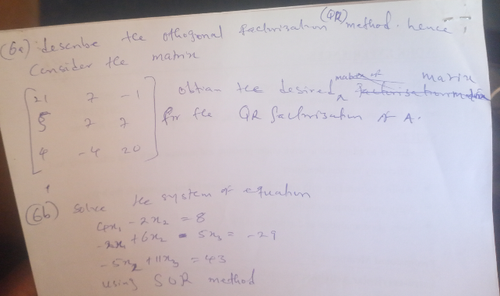 (6a) describe the othogonal factorization (QR) method. hence,
Consider the matrix
[21 7 -1
5 7 7
4 -4 20]
obtain the desired matrix of matrix
for the QR factorization of A.
(6b) Solve the system of equation
4x₁ - 2x₂ = 8
-2x₁ + 6x₂ - 5x₃ = -29
-5x₂ + 11x₃ = 43
using SOR method